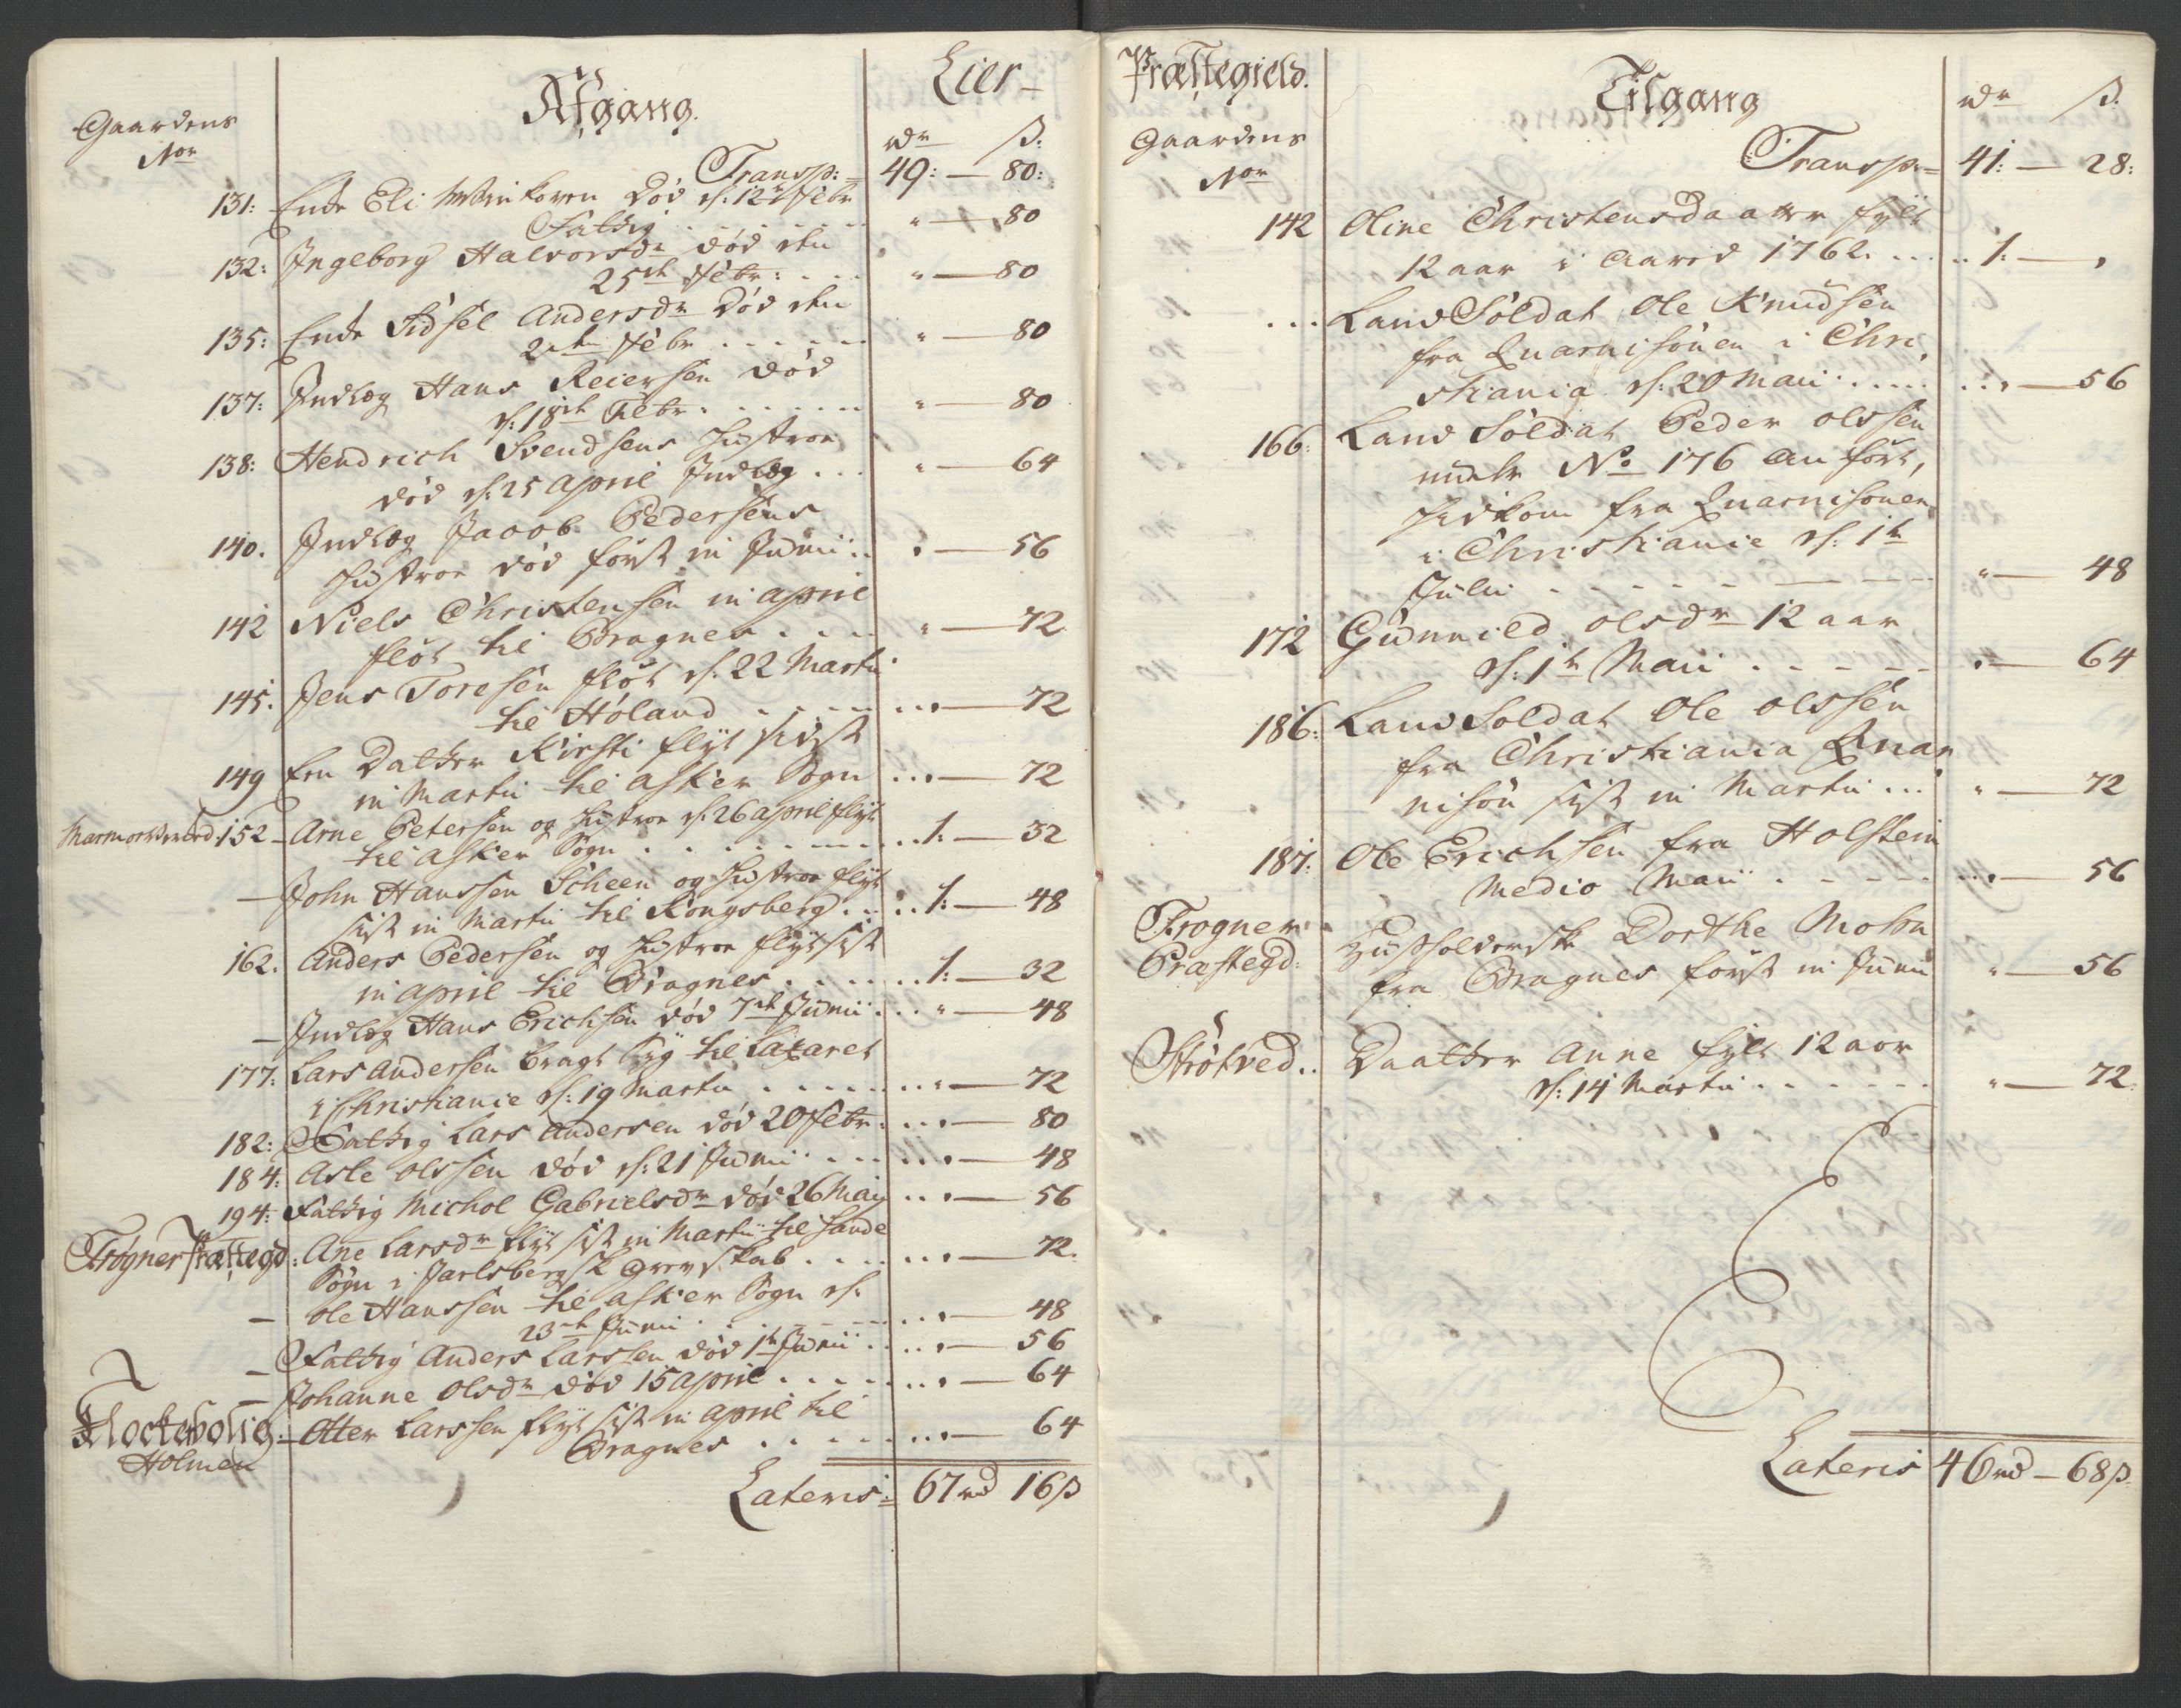 Afgang.
Lier-
Gaardens
Nor
rdr ß:
Transp:= 49:-80:
131: Enke Eli Winkoren Død d: 12te Febr
Fattig . . . . . . . " - 80
132: Ingeborg Halvorsdr død den
25de Febr: . . . . " - 80
135: Enke Sidsel Andersdr Død den
2den Febr . . . . . " - 80
137: Indlæg Hans Reiersen død
d: 18de Febr. . . . . . " - 80
138: Hendrich Svendsens Hustroe
død d: 25 April Indlæg . . . " - 64
140. Indlæg Jacob Pedersens
Hustroe død först in Junii . . " - 56
142 Niels Christensen in April
fløt til Bragnes . . . . " - 72
145. Jens Toresen fløt d: 22 Martii
til Høland . . . . . . . . " - 72
149 Een Datter Kirsti flyt sidst
in Martii til Asker Sogn . . . " - 72
Marmorbrud 152 - Arne Petersen og Hustroe d: 26 April flyt
til Asker Sogn . . . . . . . . . . 1: - 32
- John Hanssen Scheen og Hustroe flyt
sist in Martii til Kongsberg . . . . 1: - 48
162. Anders Pedersen og Hustroe flyt sist
in April til Bragnes . . . . . . 1: - 32
- Indlæg Hans Erichsen død 7de Junii . . . " - 48
177: Lars Andersen bragt syg til Lazaret
i Christianie d: 19 Martii . . . . . . . " - 72
182: Fattig Lars Andersen død 20 Febr: . . . " - 80
184: Asle Olssen død d: 21 Junii . . . . . . " - 48
194: Fattig Michol Gabrielsdr død 26 Maij . . . " - 56
Frogner Præstegd: Ane Larsdr flyt sist in Martii til Sande
Sogn i Jarlsbergsk Grevskab . . . . . . . " - 72.
- Ole Hanssen til Asker Sogn d:
23de Junii . . . . . . . " - 48
- Fattig Anders Larssen død 1te Junii . . . . " - 56
- Johanne Olsdr død 15 April . . . . . . . . " - 64
Klockerbolig:- Otter Larssen flyt sist in April til
Holmen Bragnes . . . . . . . . " - 64
Lateris: 67 rd 16 ß
Præstegield.
Tilgang
rdr ß.
Gaardens
Nor
Transp:= 41:-28:
142 Oline Christensdaatter fylt
12 aar i Aared 1762. . . . . 1: - "
. . . Land Soldat Ole Knudsen
fra Quarnisonen i Chri,
stiania d: 20 Maii . . . . . . . " - 56
166: Land Soldat Peder Olssen
under No 176 anfört,
hidkom fra Quarnisonen
i Christianie d: 1te
Julii . . . . . . . " - 48
172 Gunnild Olsdr 12 aar
d: 1te Maii . . . . . " - 64
186: Land Soldat Ole Olssen
fra Christiania Quar
nison sist in Martii . . . " - 72
187: Ole Erichsen fra Holstein
Medio Maii . . . . . . . . " - 56
Frogner Huusholderske Dorthe Mohn
Præstegd: fra Bragnes först in Junii " - 56
Strötved. . Daatter Anne fylt 12 aar
d: 14 Martii . . . . . . " - 72.
Lateris 46 rd - 68 ß.